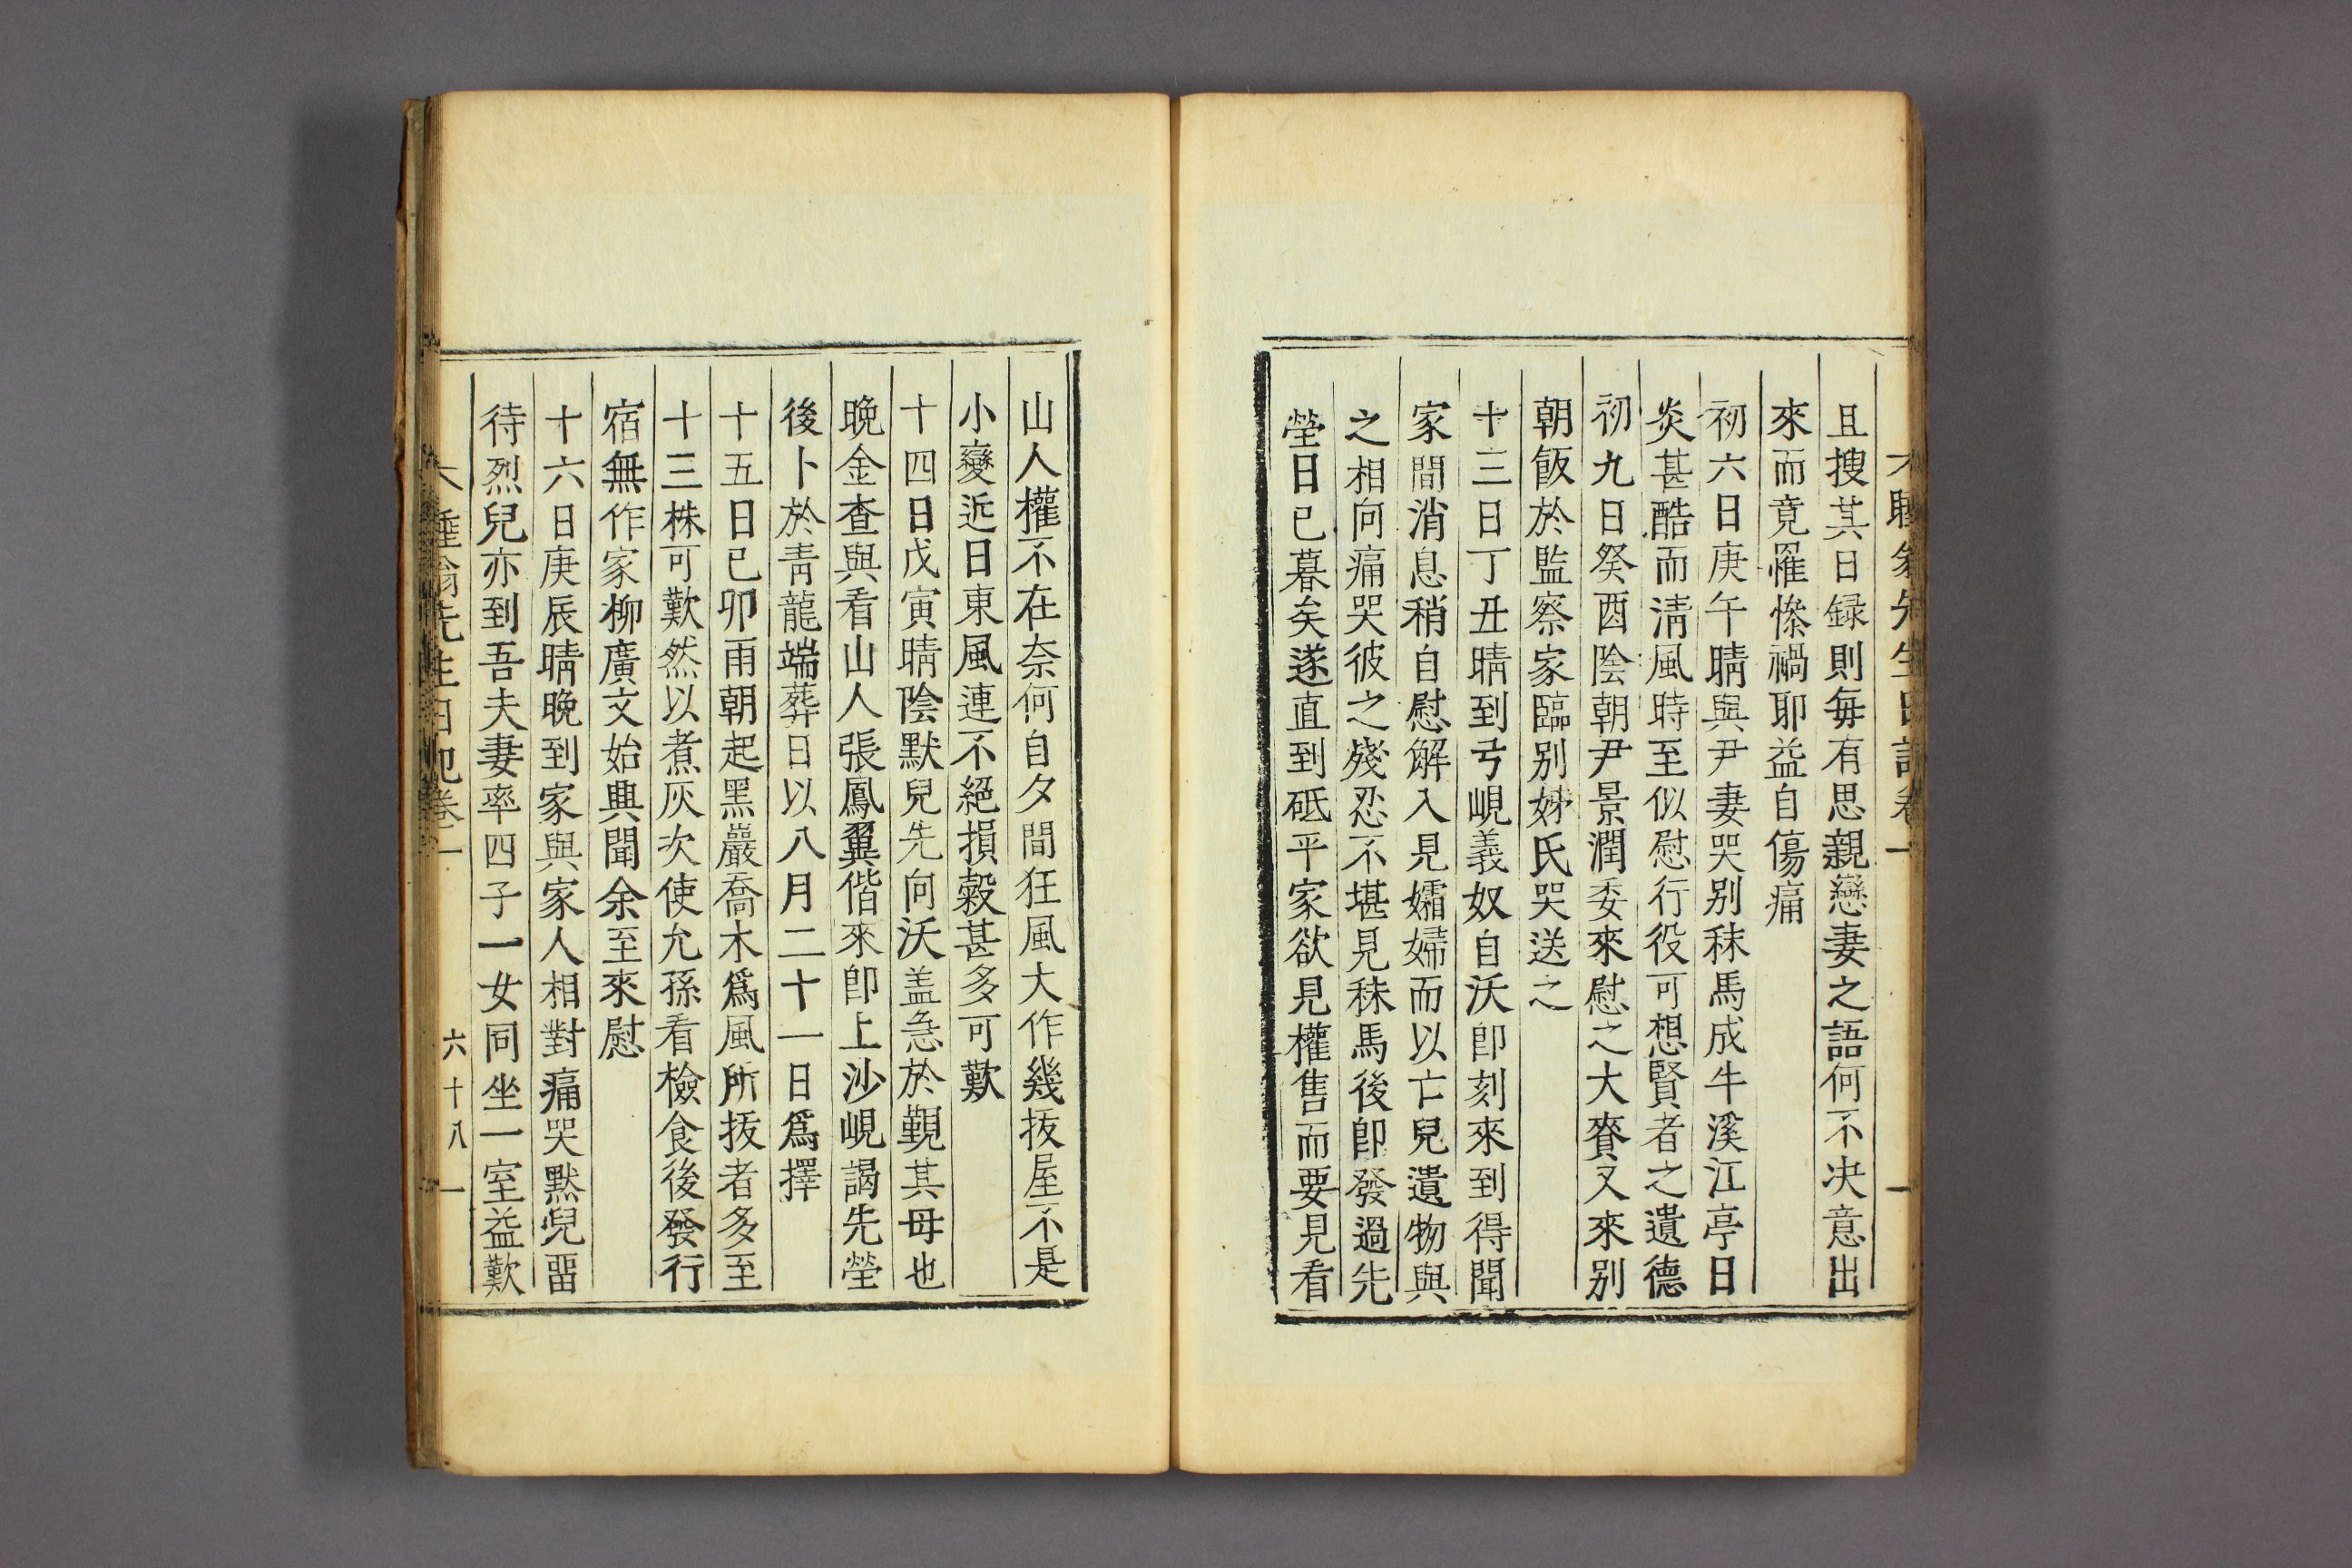 睡翁先生日記卷一
且搜其日録則每有思親戀妻之語何不决意出
來而竟罹慘禍耶益自傷痛
初六日庚午晴與尹妻哭别秣馬成牛溪江亭日
炎甚酷而淸風時至似慰行役可想賢者之遺德
初九日癸酉陰朝尹景潤委來慰之大賚又來别
朝飯於監察家臨别姊氏哭送之
十三日丁丑晴到弓峴義奴自沃卽刻來到得聞
家間消息稍自慰解入見孀婦而以亡兒遺物與
之相向痛哭彼之殘忍不堪見秣馬後卽發過先
塋日已暮矣遂直到砥平家欲見權售而要見看
山人權不在奈何自夕間狂風大作幾拔屋不是
小變近日東風連不絕損穀甚多可歎
十四日戊寅晴陰默兒先向沃盖急於覲其母也
晩金查與看山人張鳳翼偕來卽上沙峴謁先塋
後卜於靑龍端葬日以八月二十一日爲擇
十五日己卯雨朝起黑巖喬木爲風所拔者多至
十三株可歎然以煮灰次使允孫看檢食後發行
宿無作家柳廣文始興聞余至來慰
十六日庚辰晴晩到家與家人相對痛哭默兒畱
待烈兒亦到吾夫妻率四子一女同坐一室益歎
睡翁先生日記卷一
六十八